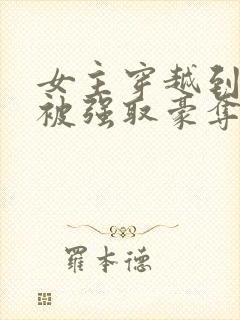 女主穿越到
被强取豪夺
羅本德